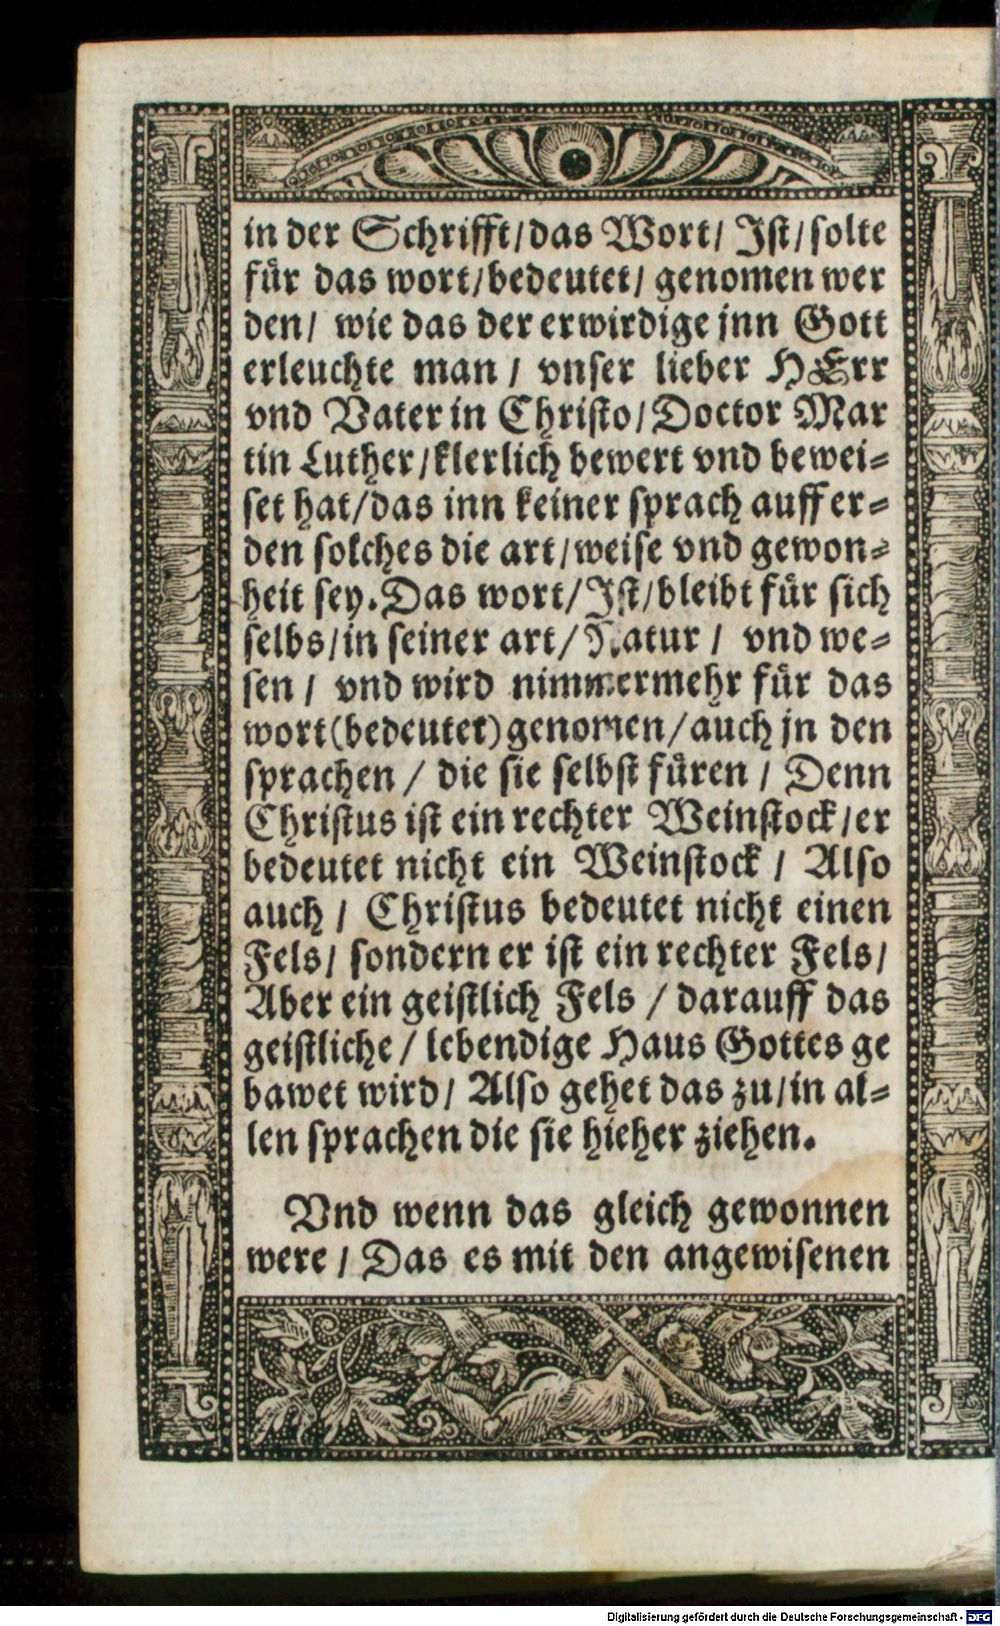 in der Schrifft/das Wort/ Ist/solte
für das wort/bedeutet/ genomen wer
den/ wie das der erwirdige jnn Gott
erleuchte man / vnser lieber HErr
vnd Vater in Christo/Doctor Mar
tin Luther/klerlich bewert vnd bewei=
set hat/das inn keiner sprach auff er=
den solches die art/weise vnd gewon=
heit sey. Das wort/Ist/bleibt für sich
selbs/in seiner art/Natur / vnd we=
sen / vnd wird nimmermehr für das
wort(bedeutet)genomen/auch jn den
sprachen / die sie selbst füren / Denn
Christus ist ein rechter Weinstock/er
bedeutet nicht ein Weinstock / Also
auch / Christus bedeutet nicht einen
Fels/ sondern er ist ein rechter Fels/
Aber ein geistlich Fels / darauff das
geistliche / lebendige Haus Gottes ge
bawet wird/ Also gehet das zu/in al=
len sprachen die sie hieher ziehen.
Vnd wenn das gleich gewonnen
were / Das es mit den angewisenen
Digitalisierung gefördert durch die Deutsche Forschungsgemeinschaft - DFG